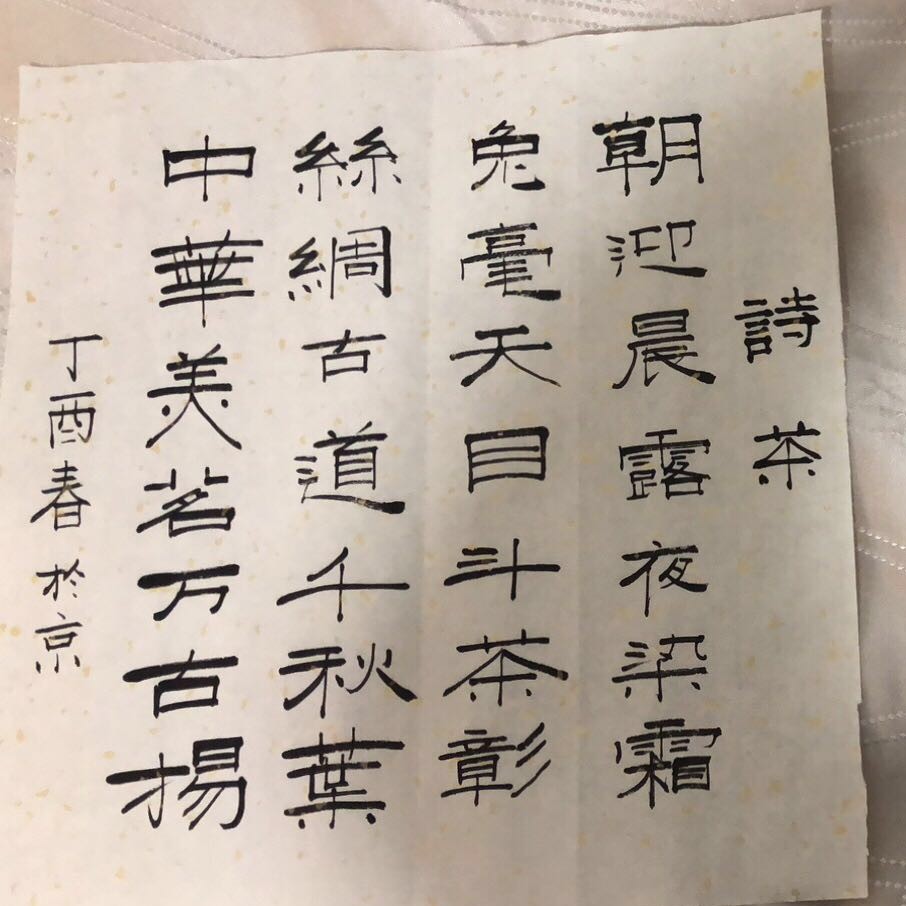 詩茶
朝迎晨露夜染霜
兔毫天目斗茶彰
絲綢古道千秋葉
中華美茗万古揚
丁酉春於京